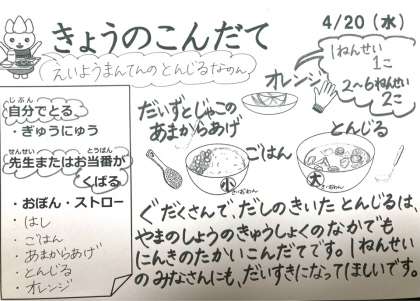 きょうのこんだて
4/20(水)
えいようまんてんの とんじるなのん
オレンジ
1ねんせい
1こ
2~6ねんせい
2こ
じぶん
自分でとる
・ぎゅうにゅう
せんせい とうばん
先生またはお当番が
くばる
・おぼん・ストロー
・はし
・ごはん
・あまからあげ
・とんじる
・オレンジ
だいずとじゃこの
あまからあげ
ごはん
小
さいおわん
とんじる
大
さいおわん
ぐだくさんで、だしのきいた とんじるは、
やまのしょうのきゅうしょくのなかでも
にんきのたかいこんだてです。1ねんせい
のみなさんにも、だいすきになってほしいです。